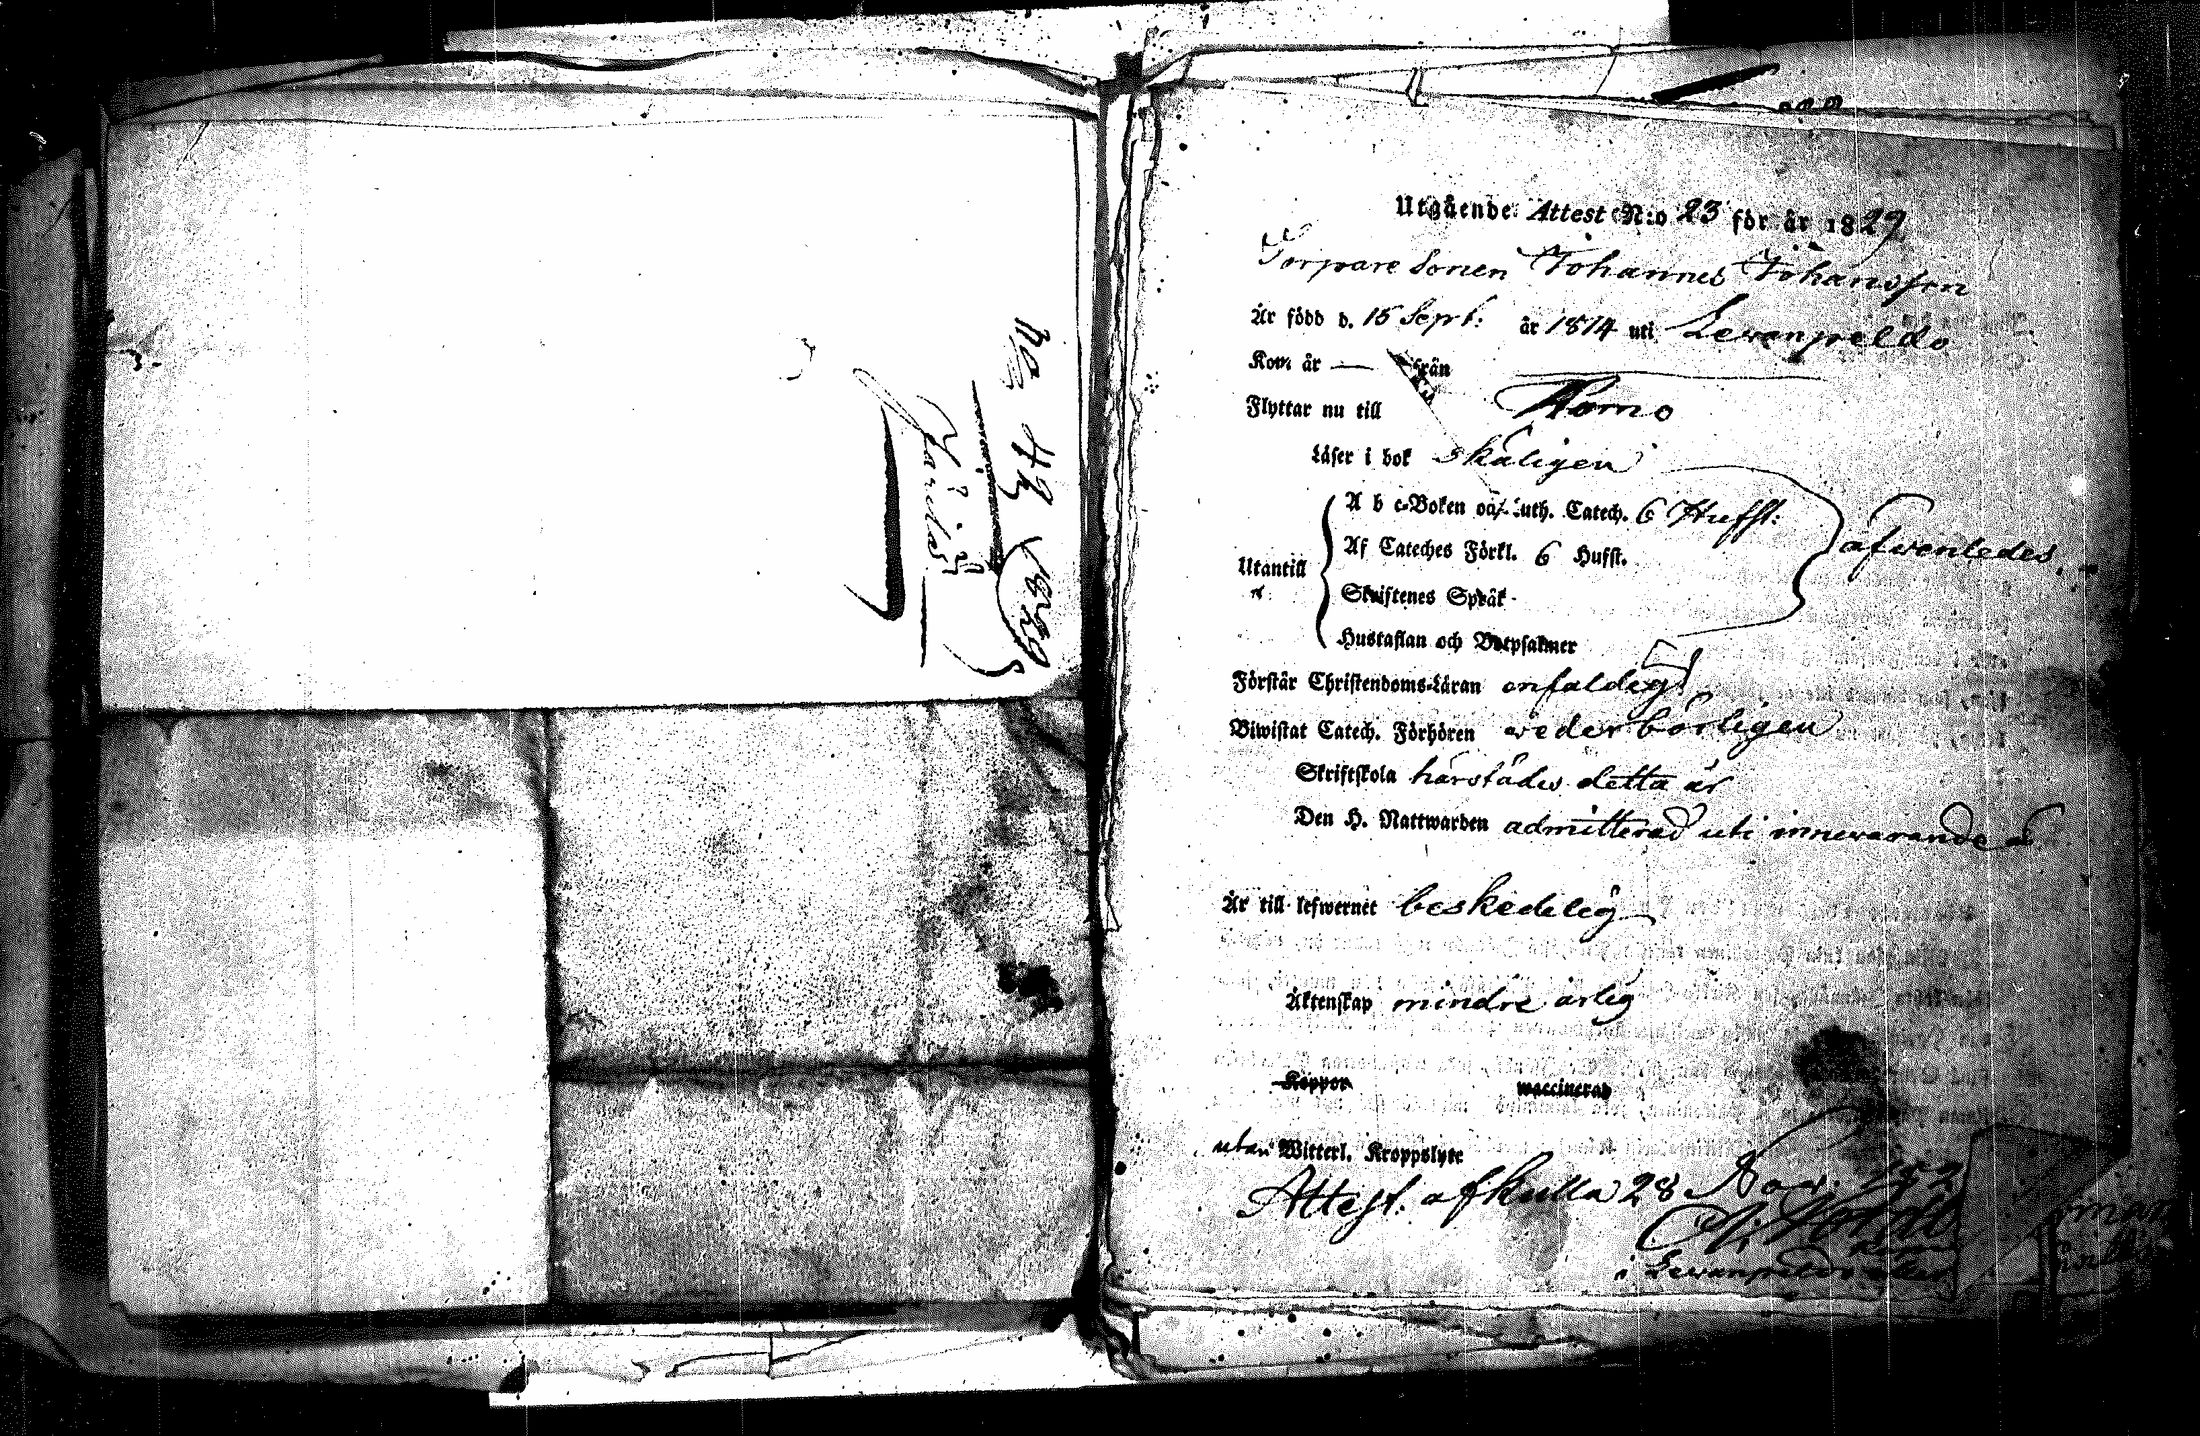 No 47 1829
Utgående Attest N:o 23 för år 1829
Torpare Sonen Johannes Johansson
Är född d. 15 Sept: år 1814 uti Lewanpeldo
Kom år — från
Flyttar nu till Komo
Läser i bok skäligen
A b c-Boken och Luth. Catech. 6 Hufst:
Af Cateches Förkl. 6 Hufst.
Utantill
afwenledes.
Skriftenes Språk
Hustaflan och Botpsalmer
Förstår Christendoms-Läran enfaldigt
Biwistat Catech. Förhören wederbörligen
Skriftskola härstädes detta år
Den H. Nattwarden admitterad uti innewarande å
Är till lefwernet beskedelig
Äktenskap mindre årlig
Koppor waccinerad
utan Witterl. Kroppslyte
Attest. af Kulla 28 Nov. 182
i Lewanpeldo